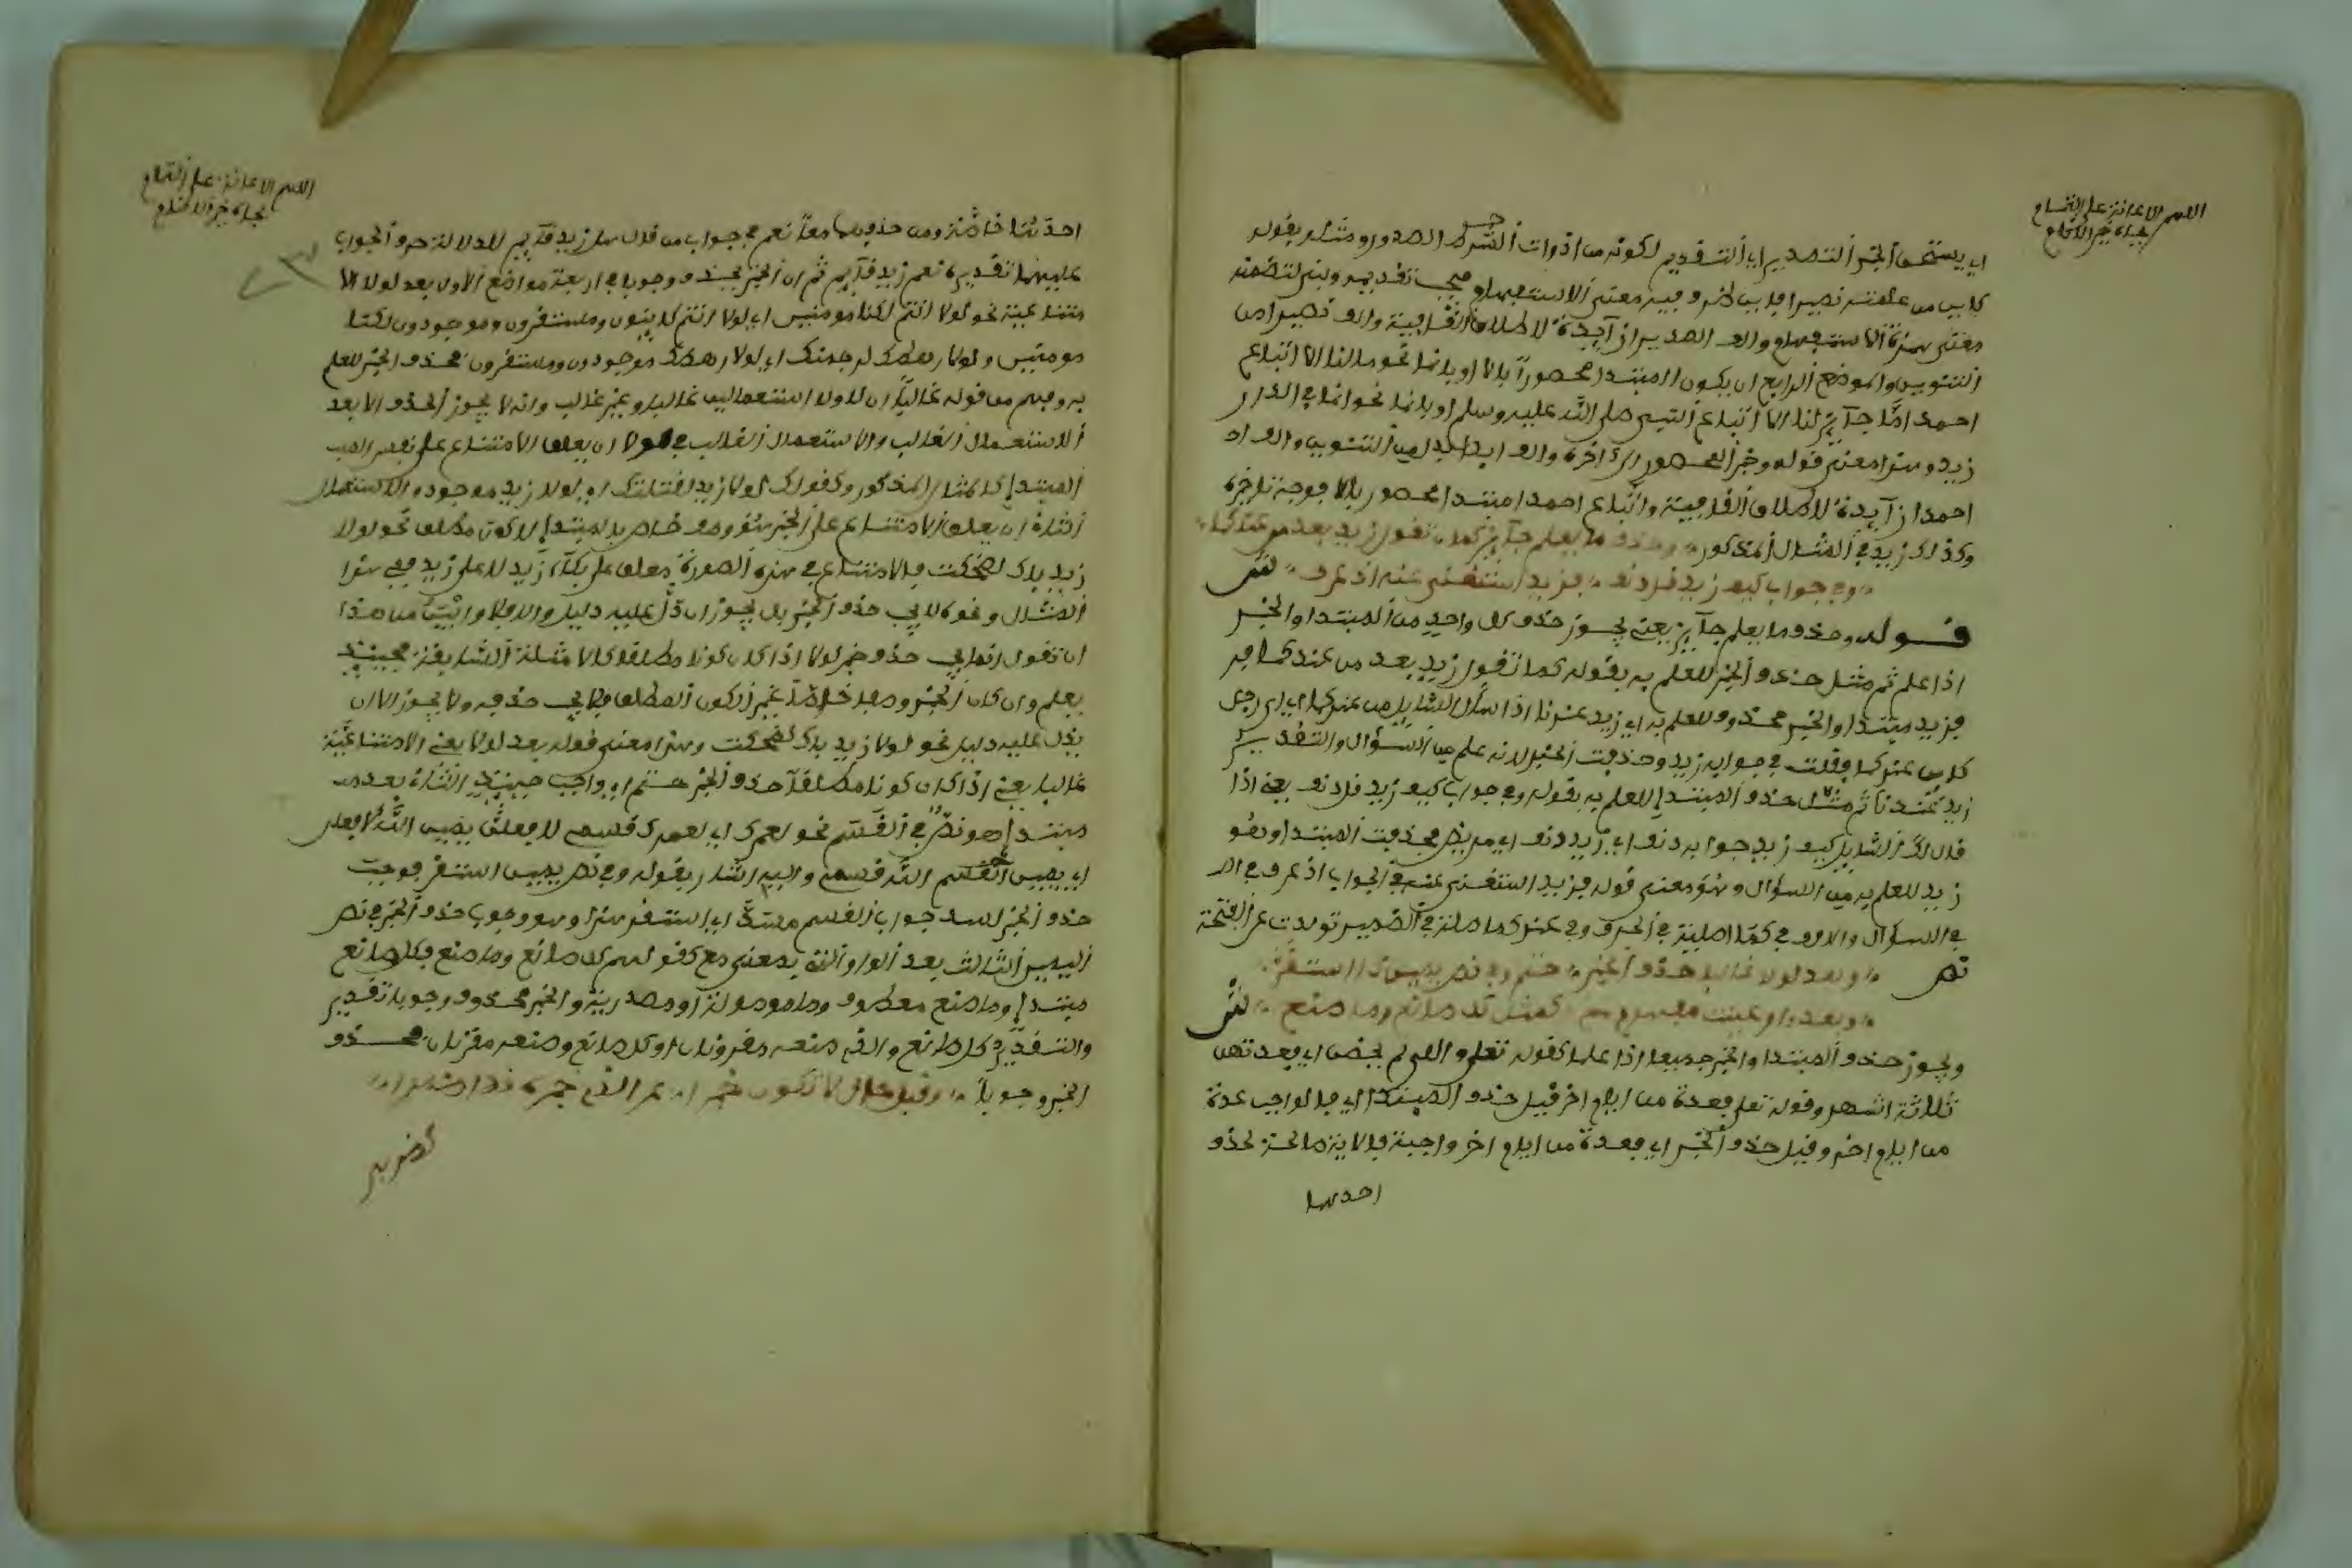 اللهم الاعانة على التمام
بجاه خير الانام
اي يستحق الخبر التصدير اي التقديم لكونه من اذوات الصدور ومثله بقوله
كاين من علمته نصيرا فاين خبر وفيه معنى الاستفهام فيجب تقديمه وبني لتضمنه
معنى همزة الاستفهام والف نصيرا من
التنوين والموضع الرابع ان يكون المبتدا محصورا بالا او بانما نحو ما لنا الا اتباع
احمد اما جآئز لنا الا اتباع النبي صلى الله عليه وسلم او بانما نحو انما في الدار
زيد وهذا معنى قوله وخبر المحصور الى آخره والف ابدا بدل من التنوين والف
احمدا زآيدة لاطلاق القافية واتباع احمدا مبتدا محصور بالا فوجب تاخره
وكذلك زيد في المثال المذكور وحذف ما يعلم جآئز كما تقول زيد بعد من عندكما
وفي جواب كيف زيد قل دنف فزيد استغني عنه اذ عرف ش
قوله وحذف ما يعلم جآئز يعني يجوز حذف كل واحد من المبتدا والخبر
اذا علم ثم مثل حذف الخبر للعلم به بقوله كما تقول زيد بعد من عندكما
فزيد مبتدا والخبر محذوف للعلم به اي زيد عندنا اذا سأل السايل من عندكما اي اي رجل
كاين عندكما فقلت في جوابه زيد وحذفت الخبر لانه علم من السؤال والتقدير
زيد عندنا ثم مثل حذف المبتدا للعلم به بقوله وفي جواب كيف زيد قل دنف يعني اذا
قال لك السايل كيف زيد جوابه دنف اي زيد دنف اي مريض فحذفت المبتدا وهو
زيد للعلم به من السؤال وهو معنى قوله فزيد استغني عنه في الجواب اذ عرف
في السؤال والالف في كما
وبعد لولا غالبا حذف الخبر حتم وفي نص يمين ذا استقر
وبعد واو عينت مفهوم مع كمثل كل صانع وما صنع ش
ويجوز حذف المبتدا والخبر جميعا اذا علما كقوله تعلى والئي لم يحضن اي فعدتهن
ثلاثة اشهر وقوله تعلى فعدة من ايام اخر قيل حذف المبتدا اي فالواجب عدة
من ايام اخر وقيل حذف الخبر اي فعدة من ايام اخر واجبة فالاية صالحة لحذف
احدهما
اللهم الاعانة على التمام
بجاه خير الانام
ومن حذفهما معا نعم في جواب من قال هل زيد قآيم للدلالة حرف الجواب
عليهما تقديره نعم زيد قآيم ثم ان الخبر يحذف وجوبا في اربعة مواضع الاول بعد لولا الا
متناعية نحو لولا انتم لكنا مومنين اي لولا انتم كاينون ومستقرون وموجودون لكنا
مومنين ولولا رهطك لرجمنك اي لولا رهطك موجودون ومستقرون فحذف الخبر للعلم
به وفهم من قوله غالبا ان للولا استعمالين غالب وغير غالب وانه لا يجوز الحذف الا بعد
الاستعمال الغالب والاستعمال الغالب في لولا ان يعلق الامتناع على نفس
المبتدا كالمثال المذكور وكقولك لولا زيد لقتلتك اي لولا زيد موجود والاستعمال
الثاني ان يعلق الامتناع على الخبر بالمبتدا لا كون مطلق نحو لولا
زيد باك لضحكت فالامتناع في هذه الصورة معلق على بكآء زيد لا على زيد ففي هذا
المثال ونحوه لا يجب حذف الخبر بل يجوز ان دل عليه دليل والا فلا من هذا
ان تقول انما يجب حذف خبر لولا اذا كان كونا مطلقا كالامثلة السابقة فحينئذ
يعلم وان كان الخبر وصفا خاصا غير الكون المطلق فلا يجب حذفه ولا يجوز الا ان
يدل عليه دليل نحو لولا زيد باك لضحكت وهذا معنى قوله بعد لولا يعني الامتناعية
غالبا يعني اذا كان كونا مطلقا حذف الخبر حتم اي واجب حينئذ الثاني بعد
مبتدا هو نص في القسم نحو لعمرك اي لعمرك قسمي لافعلن يمين الله لافعلن
اي يمين الله قسمي واليه اشار بقوله وفي نص يمين استقر فوجب
حذف الخبر لسد جواب القسم مسده اي استقر هذا وهو وجوب حذف الخبر في نص
اليمين الثالث بعد الواو التي بمعنى مع كقولهم كل صانع وما صنع فكل صانع
مبتدا وما صنع معطوف وما موصولة او مصدرية والخبر محذوف وجوبا تقدير
والتقدير كل صانع والذي صنعه مقرونان او كل صانع وصنعه مقترنان فحذف
الخبر وجوبا وقبل حال لا تكون خبرا عن الذي خبره قد اضمرا
كضربي